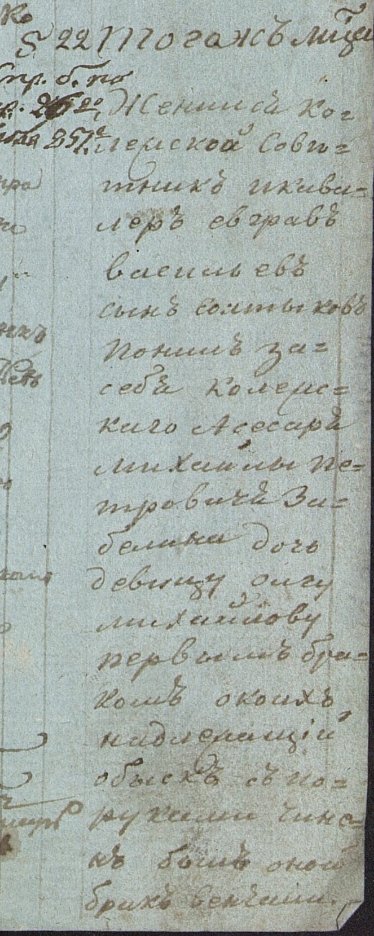 22 Тогожъ мца
Женился Ко=
лежской Совѣ=
тникъ икава=
леръ евграѳъ
васильевъ
сынъ солтыковъ
Понялъ за=
себя колежс=
каго Асесара
михайлы пе=
тровича За=
белина дочь
девицу олгу
михайлову
первымъ бра=
комъ окоихъ
надлежащій
обыскъ съпо=
руками чине=
нъ былъ оной
бракъ венчали